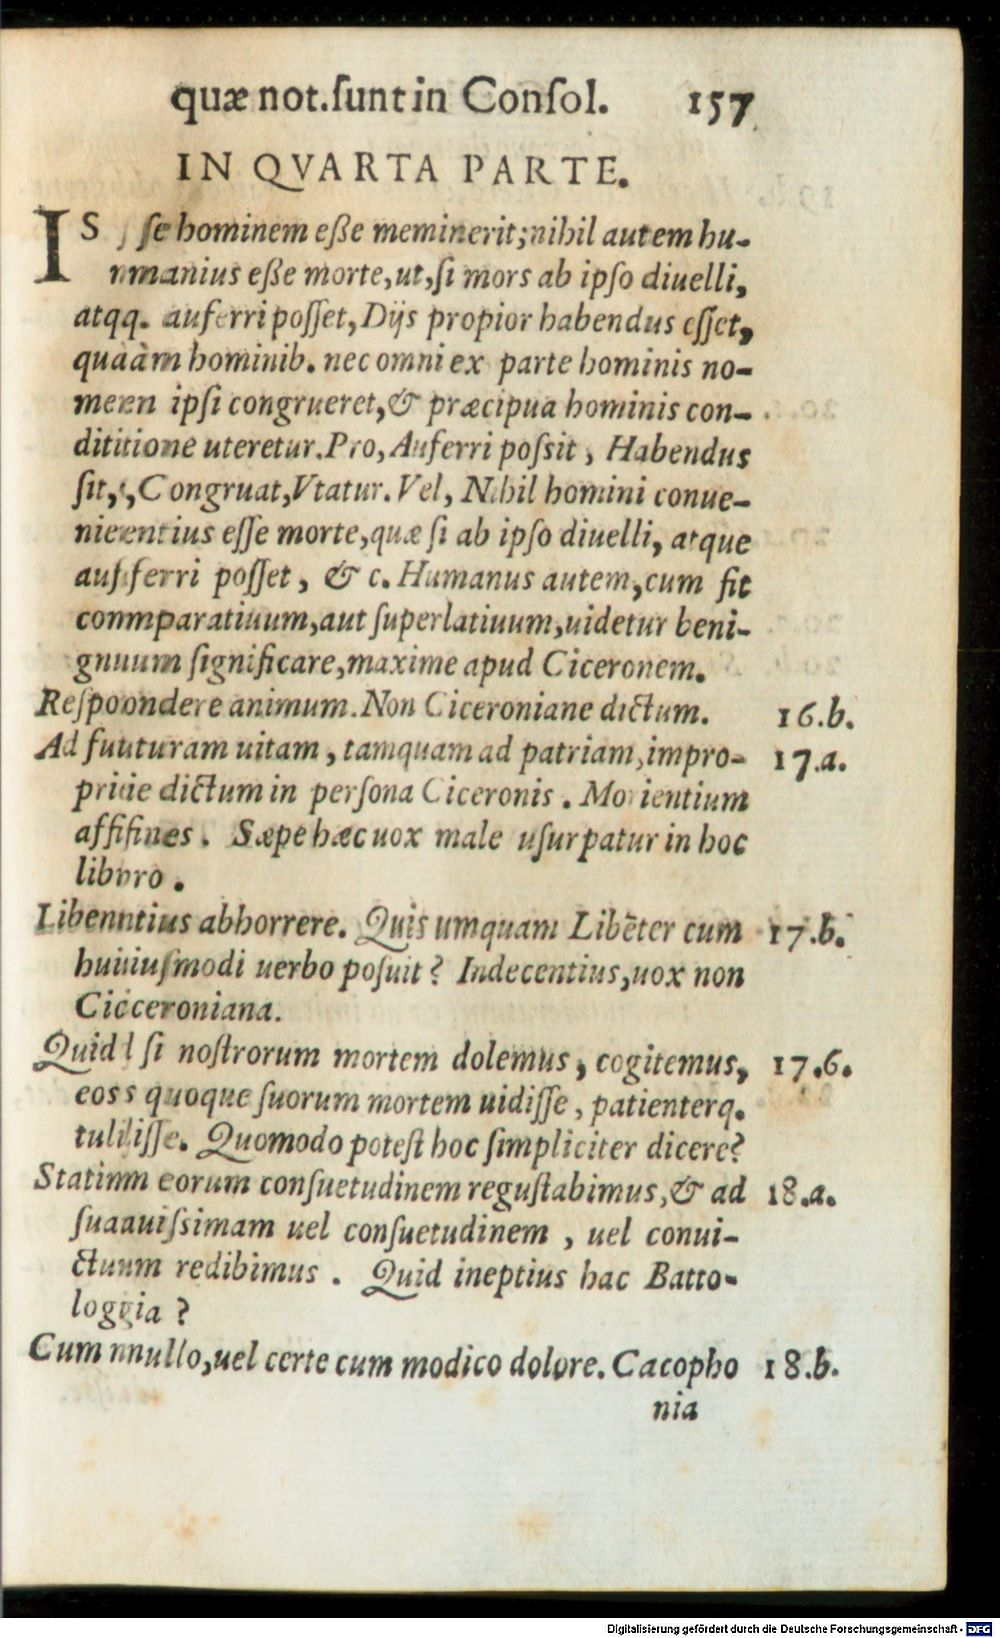 quæ not. ſunt in Conſol. 157
IN QVARTA PARTE.
IS ſe hominem eſße meminerit; nihil autem hu-
manius eſße morte, ut, ſi mors ab ipſo diuelli,
atqq. auferri poſſet, Dijs propior habendus eſſet,
quàm hominib. nec omni ex parte hominis no-
men ipſi congrueret, & præcipua hominis con-
ditione uteretur. Pro, Auferri poſsit, Habendus
ſit, Congruat, Vtatur. Vel, Nihil homini conue-
nientius eſſe morte, quæ ſi ab ipſo diuelli, atque
auferri poſſet, & c. Humanus autem, cum ſit
comparatiuum, aut ſuperlatiuum, uidetur beni-
gnum ſignificare, maxime apud Ciceronem.
Reſpondere animum. Non Ciceroniane dictum. 16.b.
Ad futuram uitam, tamquam ad patriam, impro- 17.a.
prie dictum in perſona Ciceronis. Morientium
affines. Sæpe hæc uox male uſurpatur in hoc
libro.
Libentius abhorrere. Quis umquam Libēter cum 17.b.
huiuſmodi uerbo poſuit? Indecentius, uox non
Ciceroniana.
Quid ſi noſtrorum mortem dolemus, cogitemus, 17.6.
eos quoque ſuorum mortem uidiſſe, patienterq.
tuliſſe. Quomodo poteſt hoc ſimpliciter dicere?
Statim eorum conſuetudinem reguſtabimus, & ad 18.a.
ſuauiſsimam uel conſuetudinem, uel conui-
ctum redibimus. Quid ineptius hac Batto-
logia?
Cum nullo, uel certe cum modico dolore. Cacopho 18.b.
nia
Digitalisierung gefördert durch die Deutsche Forschungsgemeinschaft - DFG